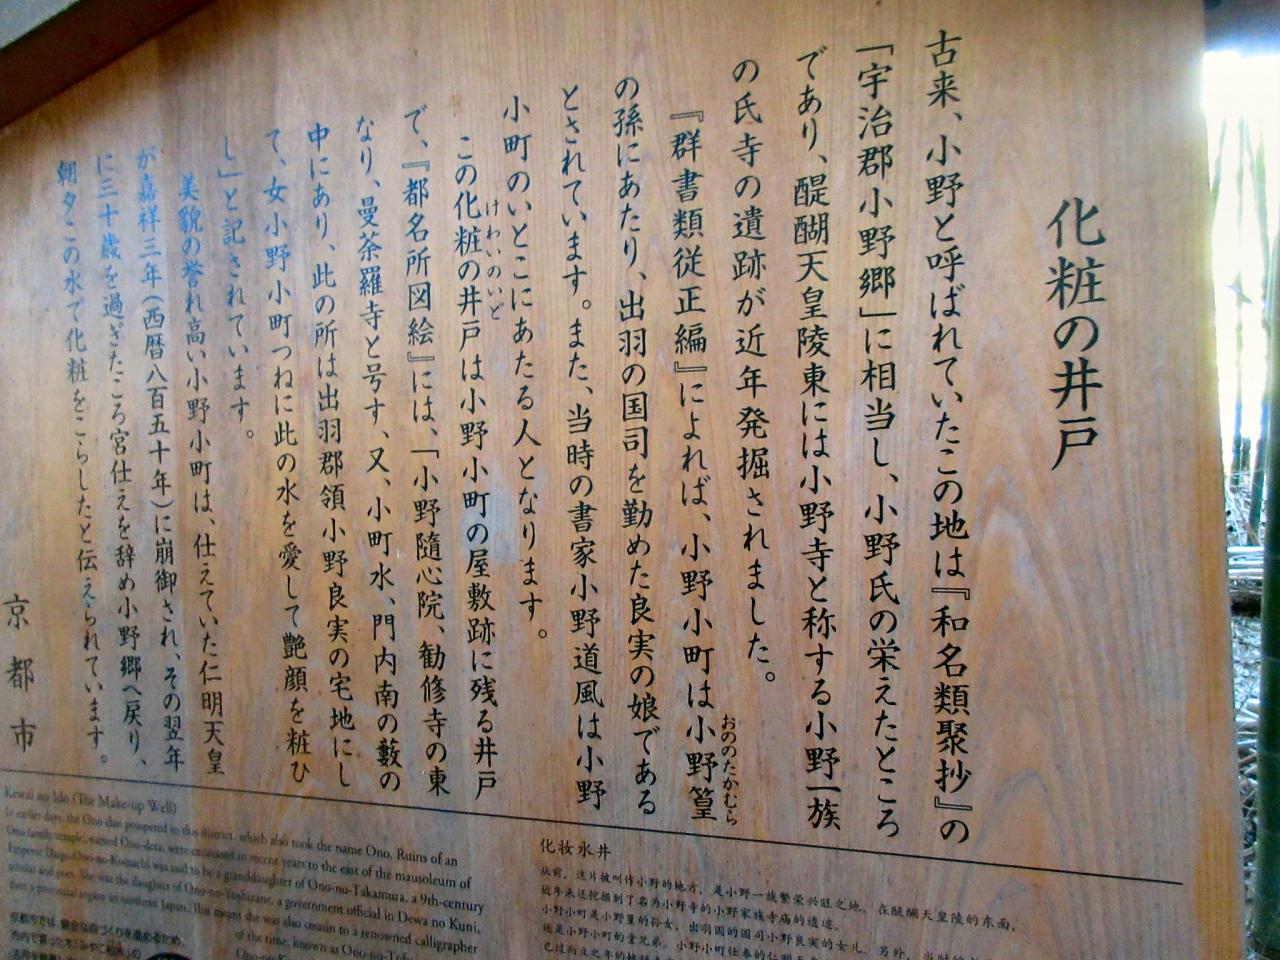 化粧の井戸
古来、小野と呼ばれていたこの地は『和名類聚抄』の
「宇治郡小野郷」に相当し、小野氏の栄えたところ
であり、醍醐天皇陵東には小野寺と称する小野一族
の氏寺の遺跡が近年発掘されました。
『群書類従正編』によれば、小野小町は小野篁
おののたかむら
の孫にあたり、出羽の国司を勤めた良実の娘である
とされています。また、当時の書家小野道風は小野
小町のいとこにあたる人となります。
この化粧の井戸は小野小町の屋敷跡に残る井戸
けわいのいど
で、『都名所図絵』には、「小野隨心院、勧修寺の東
なり、曼荼羅寺と号す、又、小町水、門内南の藪の
中にあり、此の所は出羽郡領小野良実の宅地にし
て、女小野小町つねに此の水を愛して艶顔を粧ひ
し」と記されています。
美貌の誉れ高い小野小町は、仕えていた仁明天皇
が嘉祥三年(西暦八百五十年)に崩御され、その翌年
に三十歳を過ぎたころ宮仕えを辞め小野郷へ戻り、
朝夕この水で化粧をこらしたと伝えられています。
京都市
Kewai no Ido (The Make-up Well)
In earlier days, the Ono clan prospered in this district, which also took the name Ono. Ruins of an
Ono family temple, named Ono-dera, were excavated in recent years to the east of the mausoleum of
Emperor Daigo. Ono-no-Komachi was said to be a granddaughter of Ono-no-Takamura, a 9th-century
scholar and poet. She was the daughter of Ono-no-Yoshizane, a government official in Dewa no Kuni,
then a provincial region in northern Japan. This meant she was also cousin to a renowned calligrapher
of the time, known as Ono-no-Tofu
化妆水井
从前，这片被叫作小野的地方，是小野一族繁荣兴旺之地。在醍醐天皇陵的东面，
近年来还挖掘到了名为小野寺的小野家族寺庙的遗迹。
小野小町是小野篁的孙女，出羽国的国司小野良实的女儿。另外，当时的
还是小野小町的堂兄弟。小野小町仕奉的仁明天皇
京都市では、